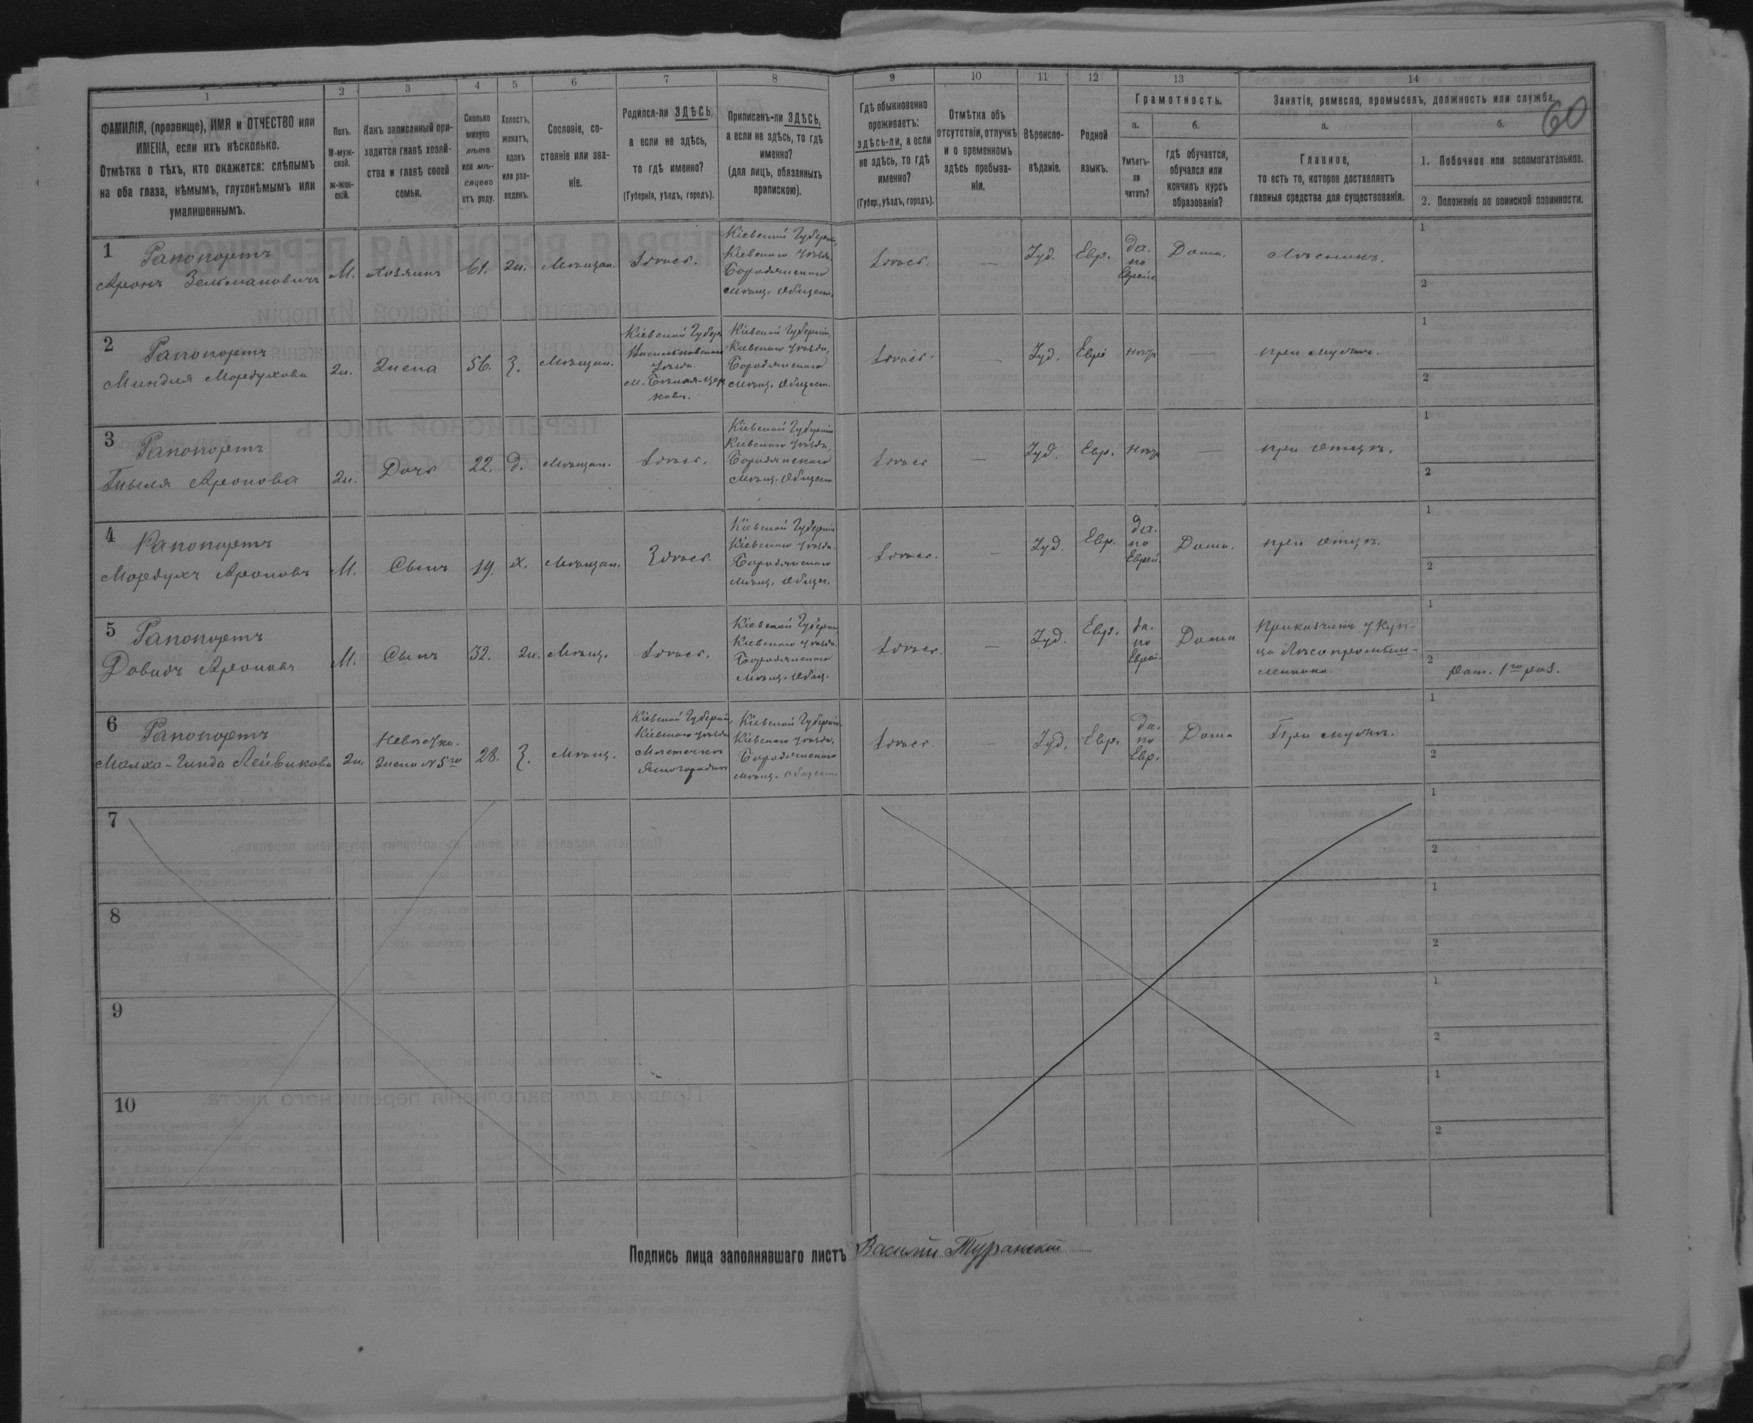 1
2
3
4
5
6
7
8
9
10
11
12
13
14
60
ФАМИЛІЯ, (прозвище), ИМЯ и ОТЧЕСТВО или
ИМЕНА, если ихъ нѣсколько.
Отмѣтка о тѣхъ, кто окажется: слѣпымъ
на оба глаза, нѣмымъ, глухонѣмымъ или
умалишеннымъ.
Полъ.
М-муж-
ской.
ж-жен-
скій.
Какъ записанный при-
ходится главѣ хозяй-
ства и главѣ своей
семьи.
Сколько
минуло
лѣтъ
или мѣ-
сяцевъ
отъ роду.
Холостъ,
женатъ,
вдовъ
или раз-
веденъ.
Сословіе, со-
стояніе или зва-
ніе.
Родился-ли ЗДѢСЬ,
а если не здѣсь,
то гдѣ именно?
(Губернія, уѣздъ, городъ).
Приписанъ-ли ЗДѢСЬ,
а если не здѣсь, то гдѣ
именно?
(для лицъ, обязанныхъ
припискою).
Гдѣ обыкновенно
проживаетъ:
здѣсь-ли, а если
не здѣсь, то гдѣ
именно?
(Губер., уѣздъ, городъ).
Отмѣтка объ
отсутствіи, отлучкѣ
и о временномъ
здѣсь пребыва-
ніи.
Вѣроиспо-
вѣданіе.
Родной
языкъ.
Грамотность.
а.
Умѣетъ-
ли
читать?
б.
гдѣ обучается,
обучался или
кончилъ курсъ
образованія?
Занятіе, ремесло, промыселъ, должность или служба.
а.
Главное,
то есть то, которое доставляетъ
главныя средства для существованія.
б.
1. Побочное или вспомогательное.
2. Положеніе по воинской повинности.
1
Рапопортъ
Аронъ Зельмановичъ
М.
хозяинъ
61.
ж.
Мѣщан.
Здѣсь.
Кіевской Губерніи,
Кіевскаго уѣзда,
Бородянского
мѣщ. общест.
Здѣсь.
—
Іуд.
Евр.
да.
по
Еврейс
Дома.
1
2
2
Рапопортъ
Миндля Мордухова
ж.
Жена
56.
З.
Мѣщан.
Кіевской Губер
Васильковскаго
уѣзда
м. Бѣлая-Цер
ковь.
Кіевской Губерніи,
Кіевскаго уѣзда,
Бородянского
мѣщ. общест.
Здѣсь.
—
Іуд.
Евре
нѣтъ
—
при мужѣ.
1
2
3
Рапопортъ
Аронова
ж.
Дочь
22.
д.
Мѣщан.
Здѣсь.
Кіевской Губерніи
Кіевскаго уѣзда,
Бородянского
мѣщ. общест
Здѣсь
—
Іуд.
Евр.
нѣтъ
—
при отцѣ.
1
2
4
Рапопортъ
Мордухъ Ароновъ
М.
Сынъ
19.
х.
Мѣщан.
Здѣсь
Кіевской Губерніи
Кіевскаго уѣзда.
Бородянского
мѣщ. общес.
Здѣсь.
—
Іуд.
Евр.
да.
по
Еврей.
Дома.
при отцѣ.
1
2
5
Рапопортъ
Довидъ Ароновъ
М.
Сынъ
32.
ж.
Мѣщ.
Здѣсь.
Кіевской Губерніи
Кіевскаго уѣзда
Бородянского
мѣщ. общ.
Здѣсь.
—
Іуд.
Евр.
да.
по
Еврей.
Дома
Прикащикъ у Куп-
ца Лѣсопромыш-
ленника
1
2
Рат. 1го раз.
6
Рапопортъ
Малка-Гинда Лейвикова
ж.
Невѣстка.
Жена №5го
28.
З.
Мѣщ.
Кіевской Губерніи,
Кіевскаго уѣзда
Мѣстечко
Ясногородка
Кіевской Губерніи,
Кіевскаго уѣзда,
Бородянского
мѣщ. общест
Здѣсь.
—
Іуд.
Евр.
да.
по
Евр.
Дома
При мужѣ.
1
2
7
1
2
8
1
2
9
1
2
10
1
2
Подпись лица заполнявшаго листъ Василій Туранскій